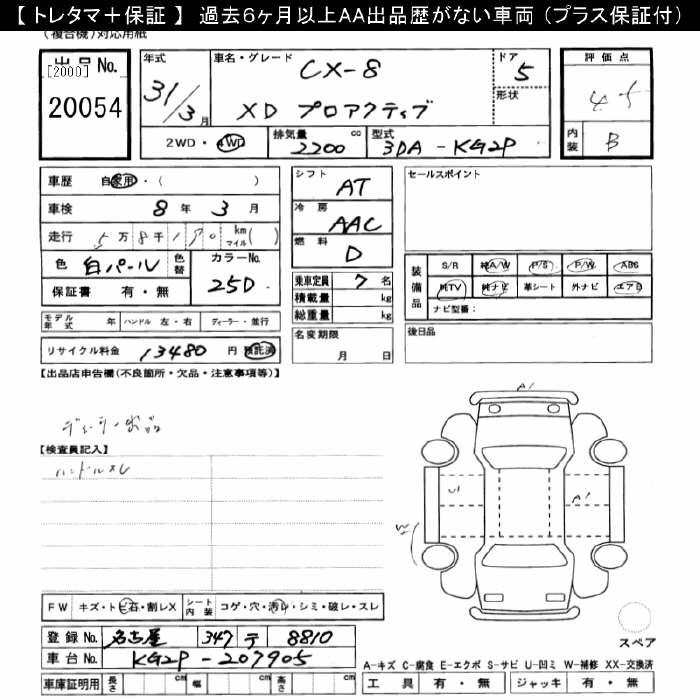 【 トレタマ＋保証 】 過去6ヶ月以上AA出品歴がない車両（プラス保証付）
（複合機）対応用紙
出品 No.
[2000]
20054
年式 31/3月
車名・グレード CX-8
XD プロアクティブ
ドア 5
形状
評価点 4.5
内装 B
2WD・4WD
排気量 2200 cc
型式 3DA-KG2P
車歴 自家用・（ ）
車検 8年 3月
走行 5万8千170 km マイル（ ）
色 白パール 色替
カラーNo. 25D
保証書 有・無
モデル年式 年 ハンドル 左・右 ディーラー・並行
リサイクル料金 13480円 預託済
シフト AT
冷房 AAC
燃料 D
乗車定員 7名
積載量 kg
総重量 kg
名変期限 月 日
セールスポイント
装備品 S/R 純A/W P/S P/W ABS
純TV 純ナビ 革シート 外ナビ エアB
ナビ型番：
後日品
【出品店申告欄(不良箇所・欠品・注意事項等)】
ディーラー出品
【検査員記入】
ハンドルスレ
A1
U1
A1
W
FW キズ・トビ石・割レX シート内装 コゲ・穴・汚レ・シミ・破レ・スレ
登録 No. 名古屋 347 テ 8810
車台 No. KG2P-207905
車庫証明用 長さ cm 幅 cm 高さ cm
スペア
A-キズ C-腐食 E-エクボ S-サビ U-凹ミ W-補修 XX-交換済
工具 有・無 ジャッキ 有・無